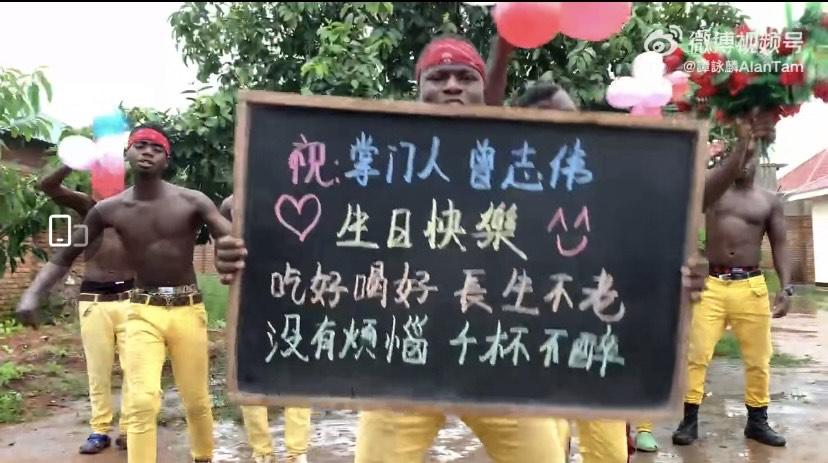 微博视频号
@譚詠麟AlanTam
祝:掌门人 曾志伟
生日快樂
吃好喝好 長生不老
没有煩惱 千杯不醉